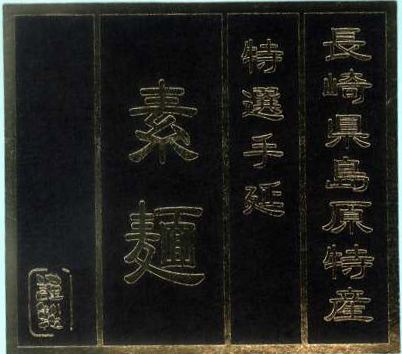 長崎県島原特産
特選手延
素麺